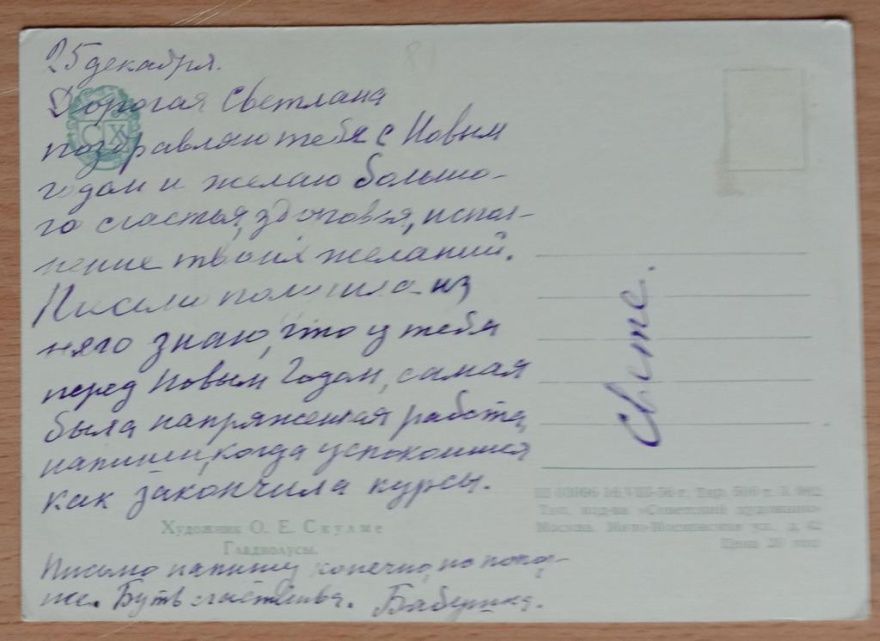 25 декабря.
Дорогая Светлана
СХ
поздравляю тебя с Новым
годом и желаю большо-
го счастья, здоровья, испол-
нение твоих желаний.
Письмо получила из
него знаю, что у тебя
перед Новым Годом, самая
была напряженная работа,
напиши, когда успокоишся
как закончила курсы.
Свете.
Художник О. Е. Скулме
Гладиолусы.
Тип. изд-ва «Советский художник»
Москва, ул., д. 42
Цена 20 коп
Письмо напишу конечно, но позд-
же. Буть счастлива. Бабушка.